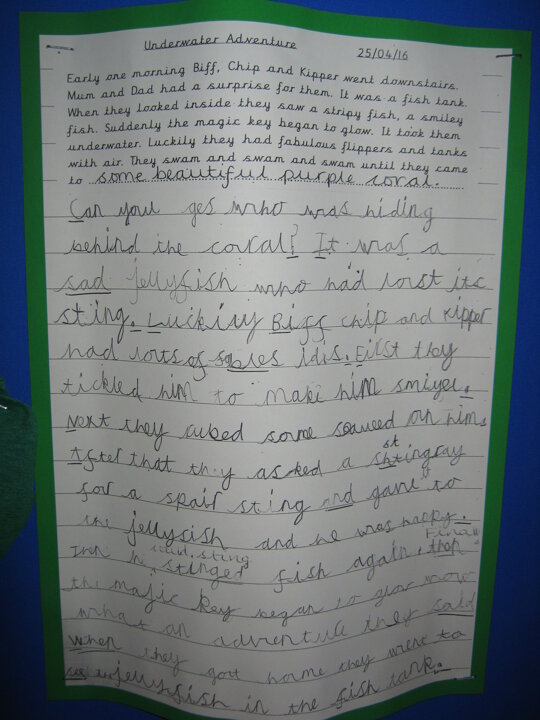 Underwater Adventure 25/04/16
Early one morning Biff, Chip and Kipper went downstairs.
Mum and Dad had a surprise for them. It was a fish tank.
When they looked inside they saw a stripy fish, a smiley
fish. Suddenly the magic key began to glow. It took them
underwater. Luckily they had fabulous flippers and tanks
with air. They swam and swam and swam until they came
to some beautiful purple coral.
Can you ges who was hiding
behind the coral? It was a
sad jellyfish who had lost its
sting. Luckily Biff chip and kipper
had lots of idis. First they
tickled him to make him
Next they rubed some on him.
After that they asked a stingray
for a spair sting and gave it to
the jellyfish and he was happy.
Then he stinged fish again. Finally
the majic key began to glow
what an adventure they said
When they got home they went to
see jellyfish in the fish tank.